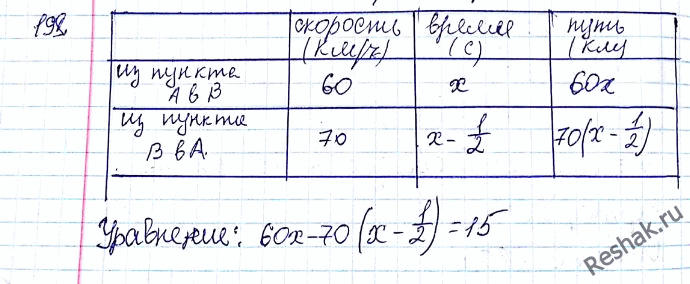 198
скорость (км/ч) время (с) путь (км)
из пункта А в В 60 x 60x
из пункта В в А 70 x - 1/2 70(x - 1/2)
Уравнение: 60x-70(x - 1/2)=15
Reshak.ru